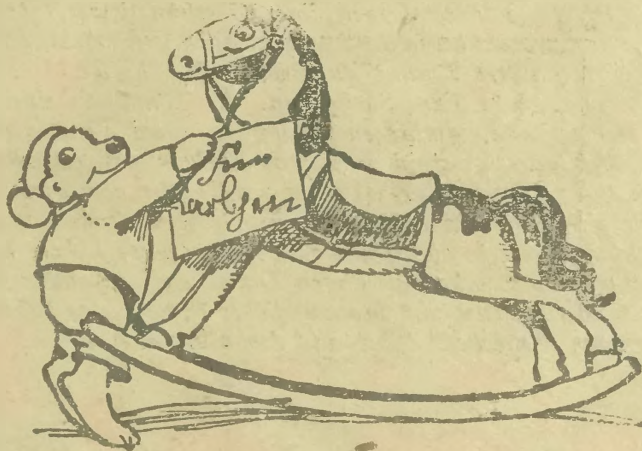 Für
Karlchen